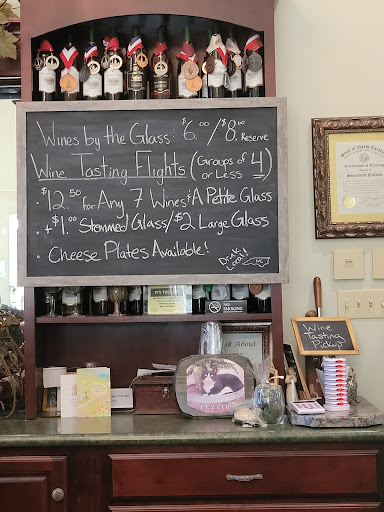 Wines by the Glass: $6.00/$8.00 Reserve
Wine Tasting Flights (Groups of 4 or Less)
• $12.50 for Any 7 Wines & A Petite Glass
• +$1.00 Stemmed Glass/$2 Large Glass
• Cheese Plates Available!
Drink Local!
NC
State of North Carolina
NO SMOKING
Wine
Tasting
Pickup